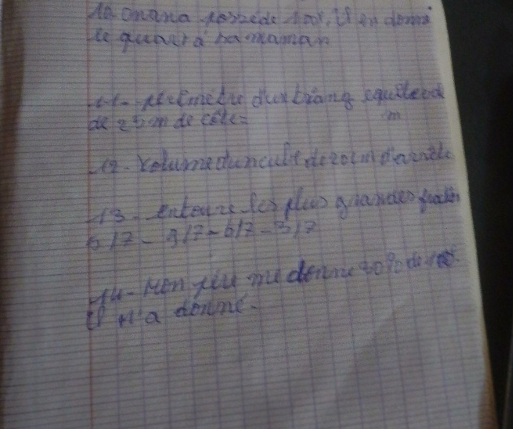 10 onana possède 100f, il en donne
le quart à sa maman
11- périmètre du triang équilaté
de 25m de côté= m
12- volume d'un cube de 20cm d'arrête
13- entoure les plus grandes fraction
5/7 - 9/7 - 6/7 - 3/7
14- Mon père me donne 30% de
Il m'a donné-